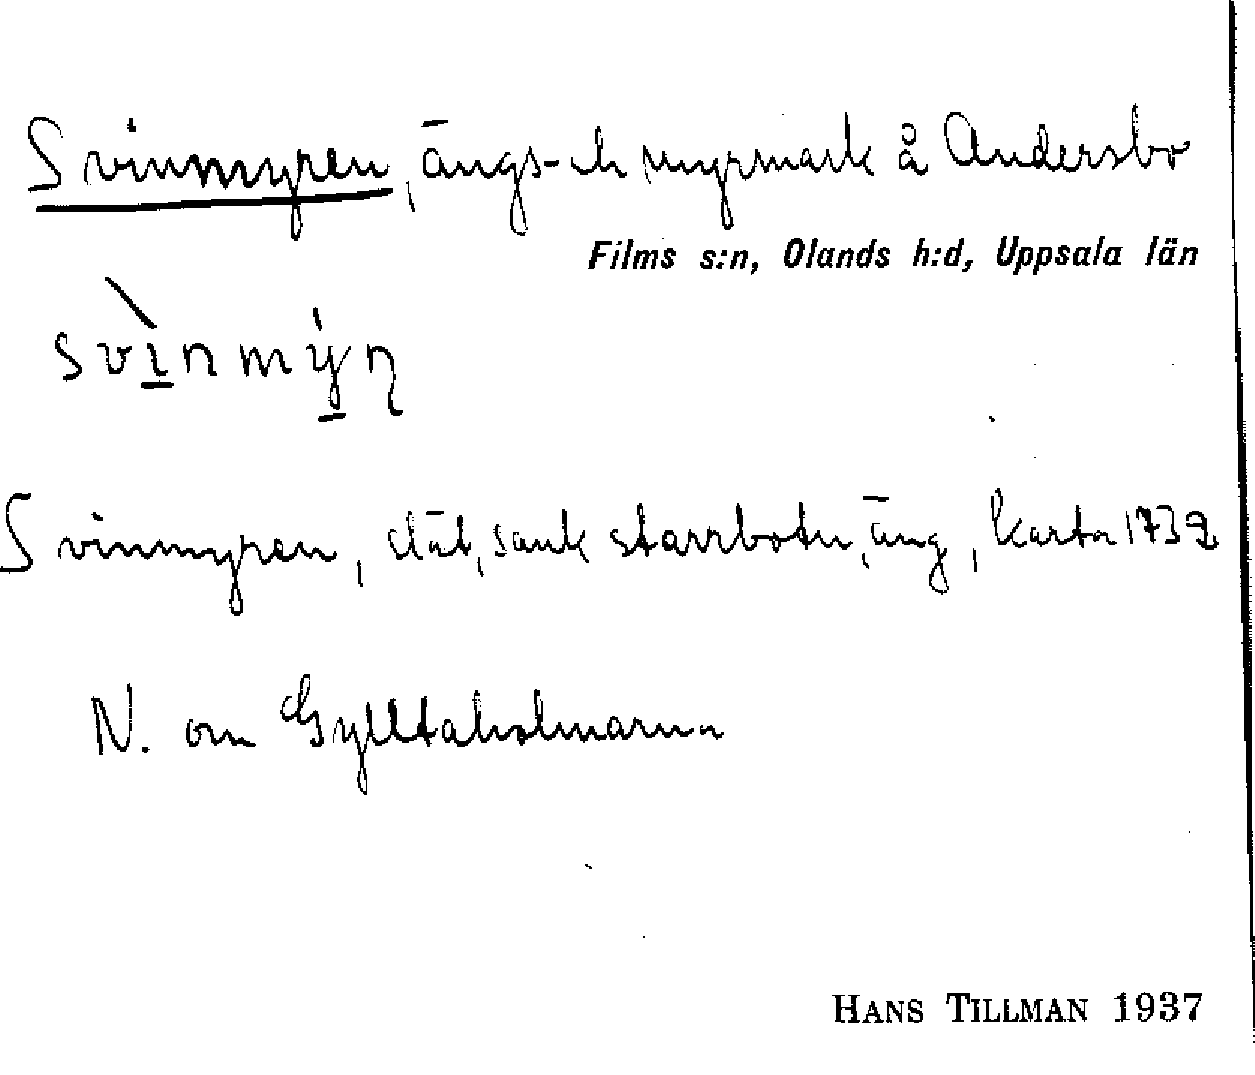 Svinmyren, ängs- ch myrmark å Andersbo
Films s:n, Olands h:d, Uppsala län
svìnmýn̥
Svinmyren, dät, sank starrbotn, äng, karta 1732
N. om Gylltaholmarna
HANS TILLMAN 1937